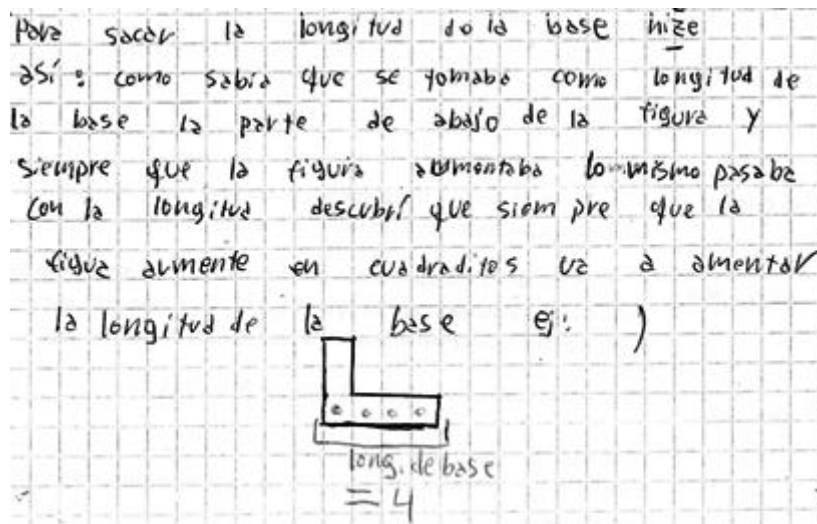 Para sacar la longitud de la base hize
así: como sabia que se tomaba como longitud de
la base la parte de abajo de la figura y
siempre que la figura aumentaba lo mismo pasaba
con la longitud descubrí que siempre que la
figua aumente en cuadraditos va a amentar
la longitud de la base ej: )
long. de base
= 4